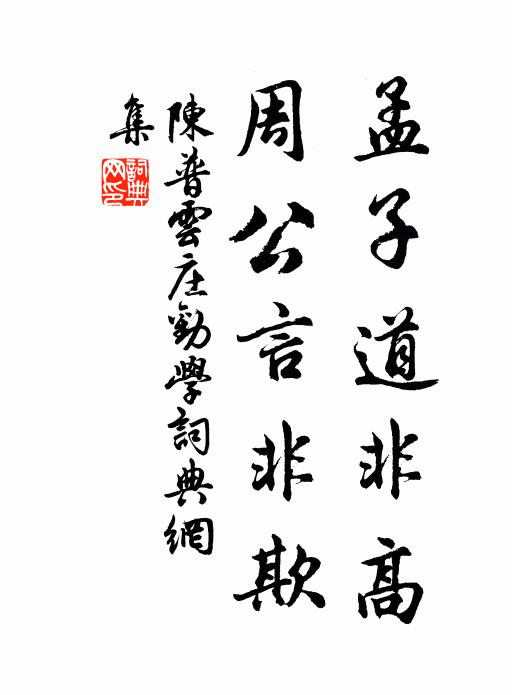 孟子道非高
周公言非欺
陳普雲庄勸學詞典網
集
詞典
网印